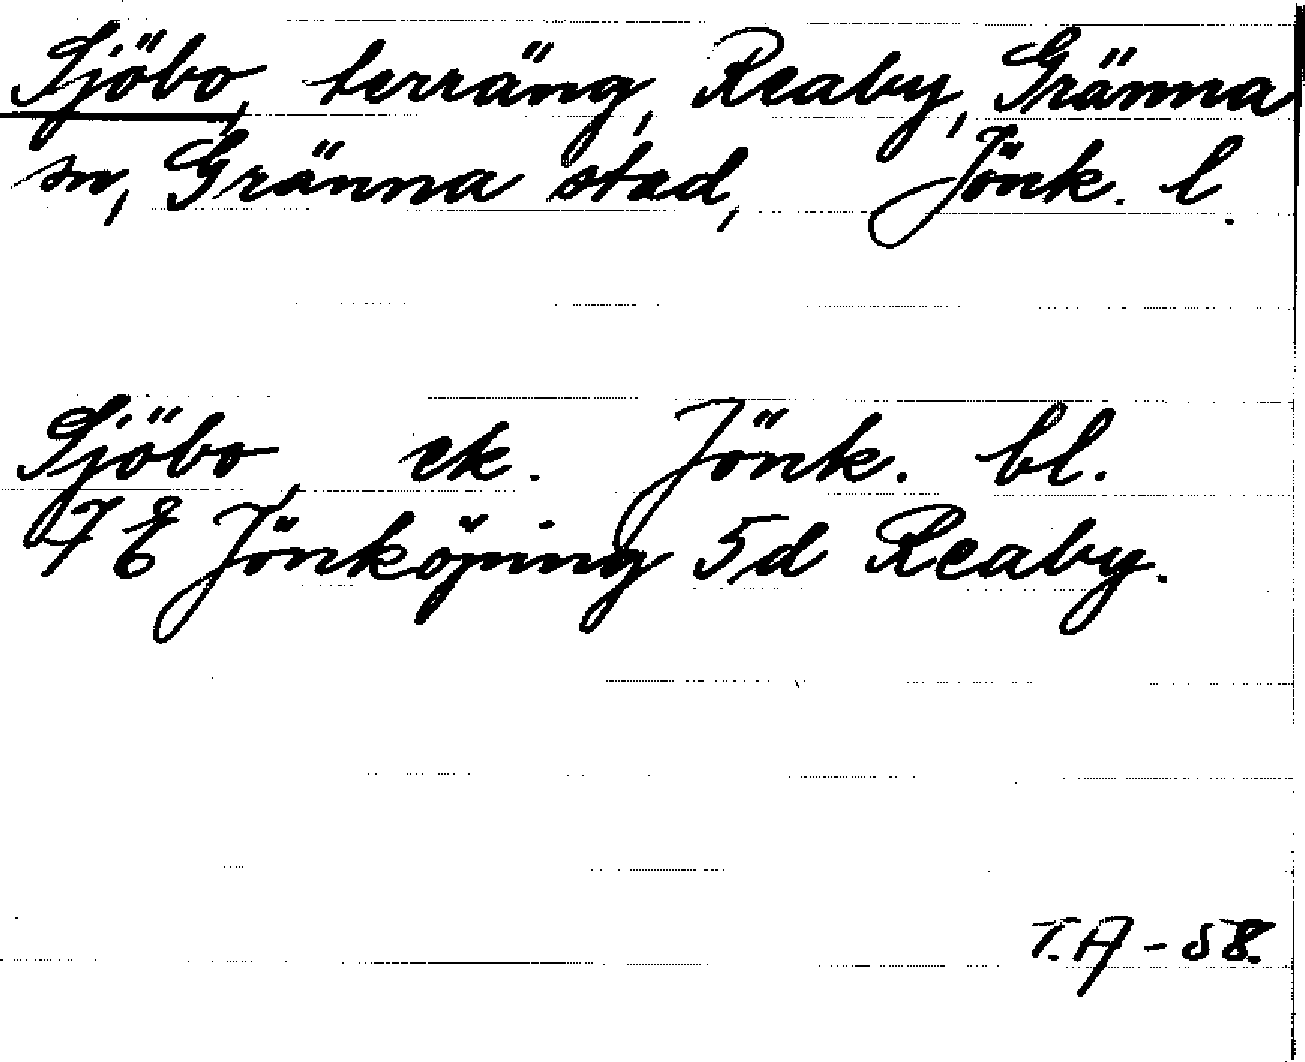 Sjöbo, terräng, Reaby, Gränna
sn, Gränna stad, Jönk. l.
Sjöbo, ek. Jönk. bl.
7 E Jönköping 5d Reaby.
T.A-58.